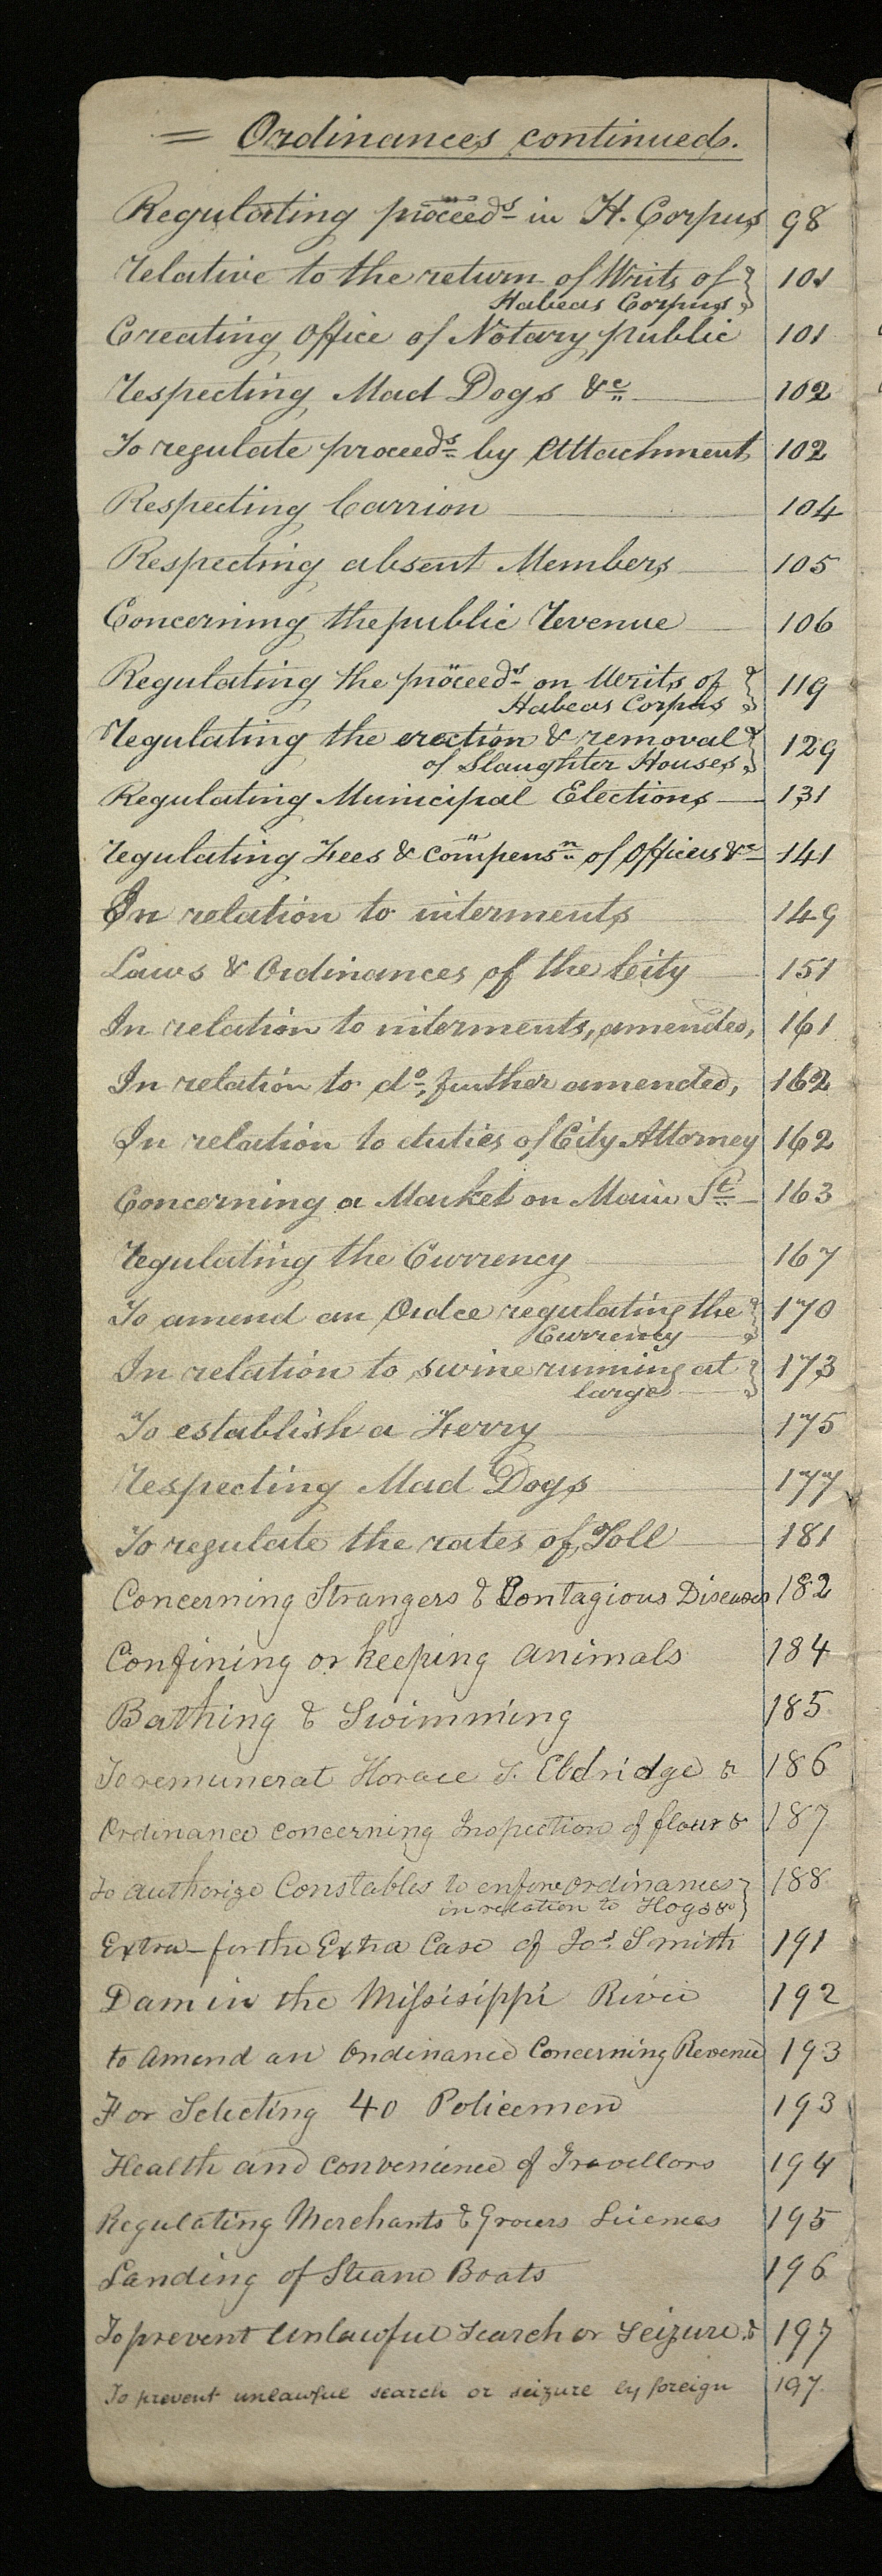 = Ordinances continued.
Regulating proceeds in H. Corpus 98
relative to the return of Writs of } 101
Habeas Corpus }
Creating Office of Notary public 101
respecting Mad Dogs &c 102
To regulate proceeds by Attachment 102
Respecting Carrion 104
Respecting absent Members 105
Concerning the public revenue 106
Regulating the proceeds on Writs of } 119
Habeas Corpus }
regulating the erection & removal } 129
of Slaughter Houses }
Regulating Municipal Elections 131
regulating Fees & compensn of Officers &c 141
In relation to interments 149
Laws & Ordinances of the City 151
In relation to interments, amended, 161
In relation to do, further amended, 162
In relation to duties of City Attorney 162
Concerning a Market on Main St 163
regulating the Currency 167
To amend an Ordce regulating the } 170
Currency }
In relation to swine running at } 173
large }
To establish a Ferry 175
respecting Mad Dogs 177
To regulate the rates of Toll 181
Concerning Strangers & Contagious Diseases 182
Confining or keeping animals 184
Bathing & Swimming 185
To remunerat Horace S. Eldridge & 186
Ordinance concerning Inspection of flour & 187
To authorize Constables to enforce ordinances } 188
in relation to Hogs & }
Extra - for the Extra Case of Jos. Smith 191
Dam in the Missisippi River 192
to amend an Ordinance Concerning Revenue 193
For Selecting 40 Policemen 193
Health and convenience of Travellors 194
Regulating Merchants & Grocers Licences 195
Landing of Steam Boats 196
To prevent unlawful search or seizure & 197
To prevent unlawful search or seizure by foreign 197.